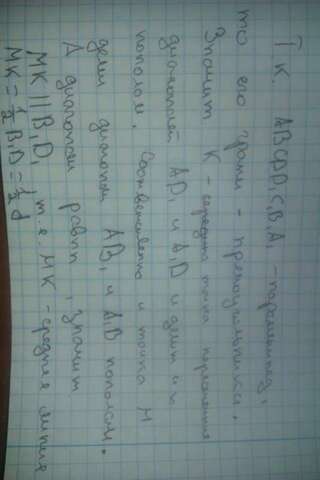 Т.К. ABCDD₁C₁B₁A₁ - параллепипед,
то его грани - прямоугольники.
Значит К - середина точка пересечения
диагоналей AD₁ и A₁D и делит их
пополам. Соответственно и точка М
делит диагонали AB₁ и A₁B пополам.
А диагонали равны, значит
MK || B₁D₁ т.е. MK - средняя линия
MK = ½ B₁D₁ = ½ d